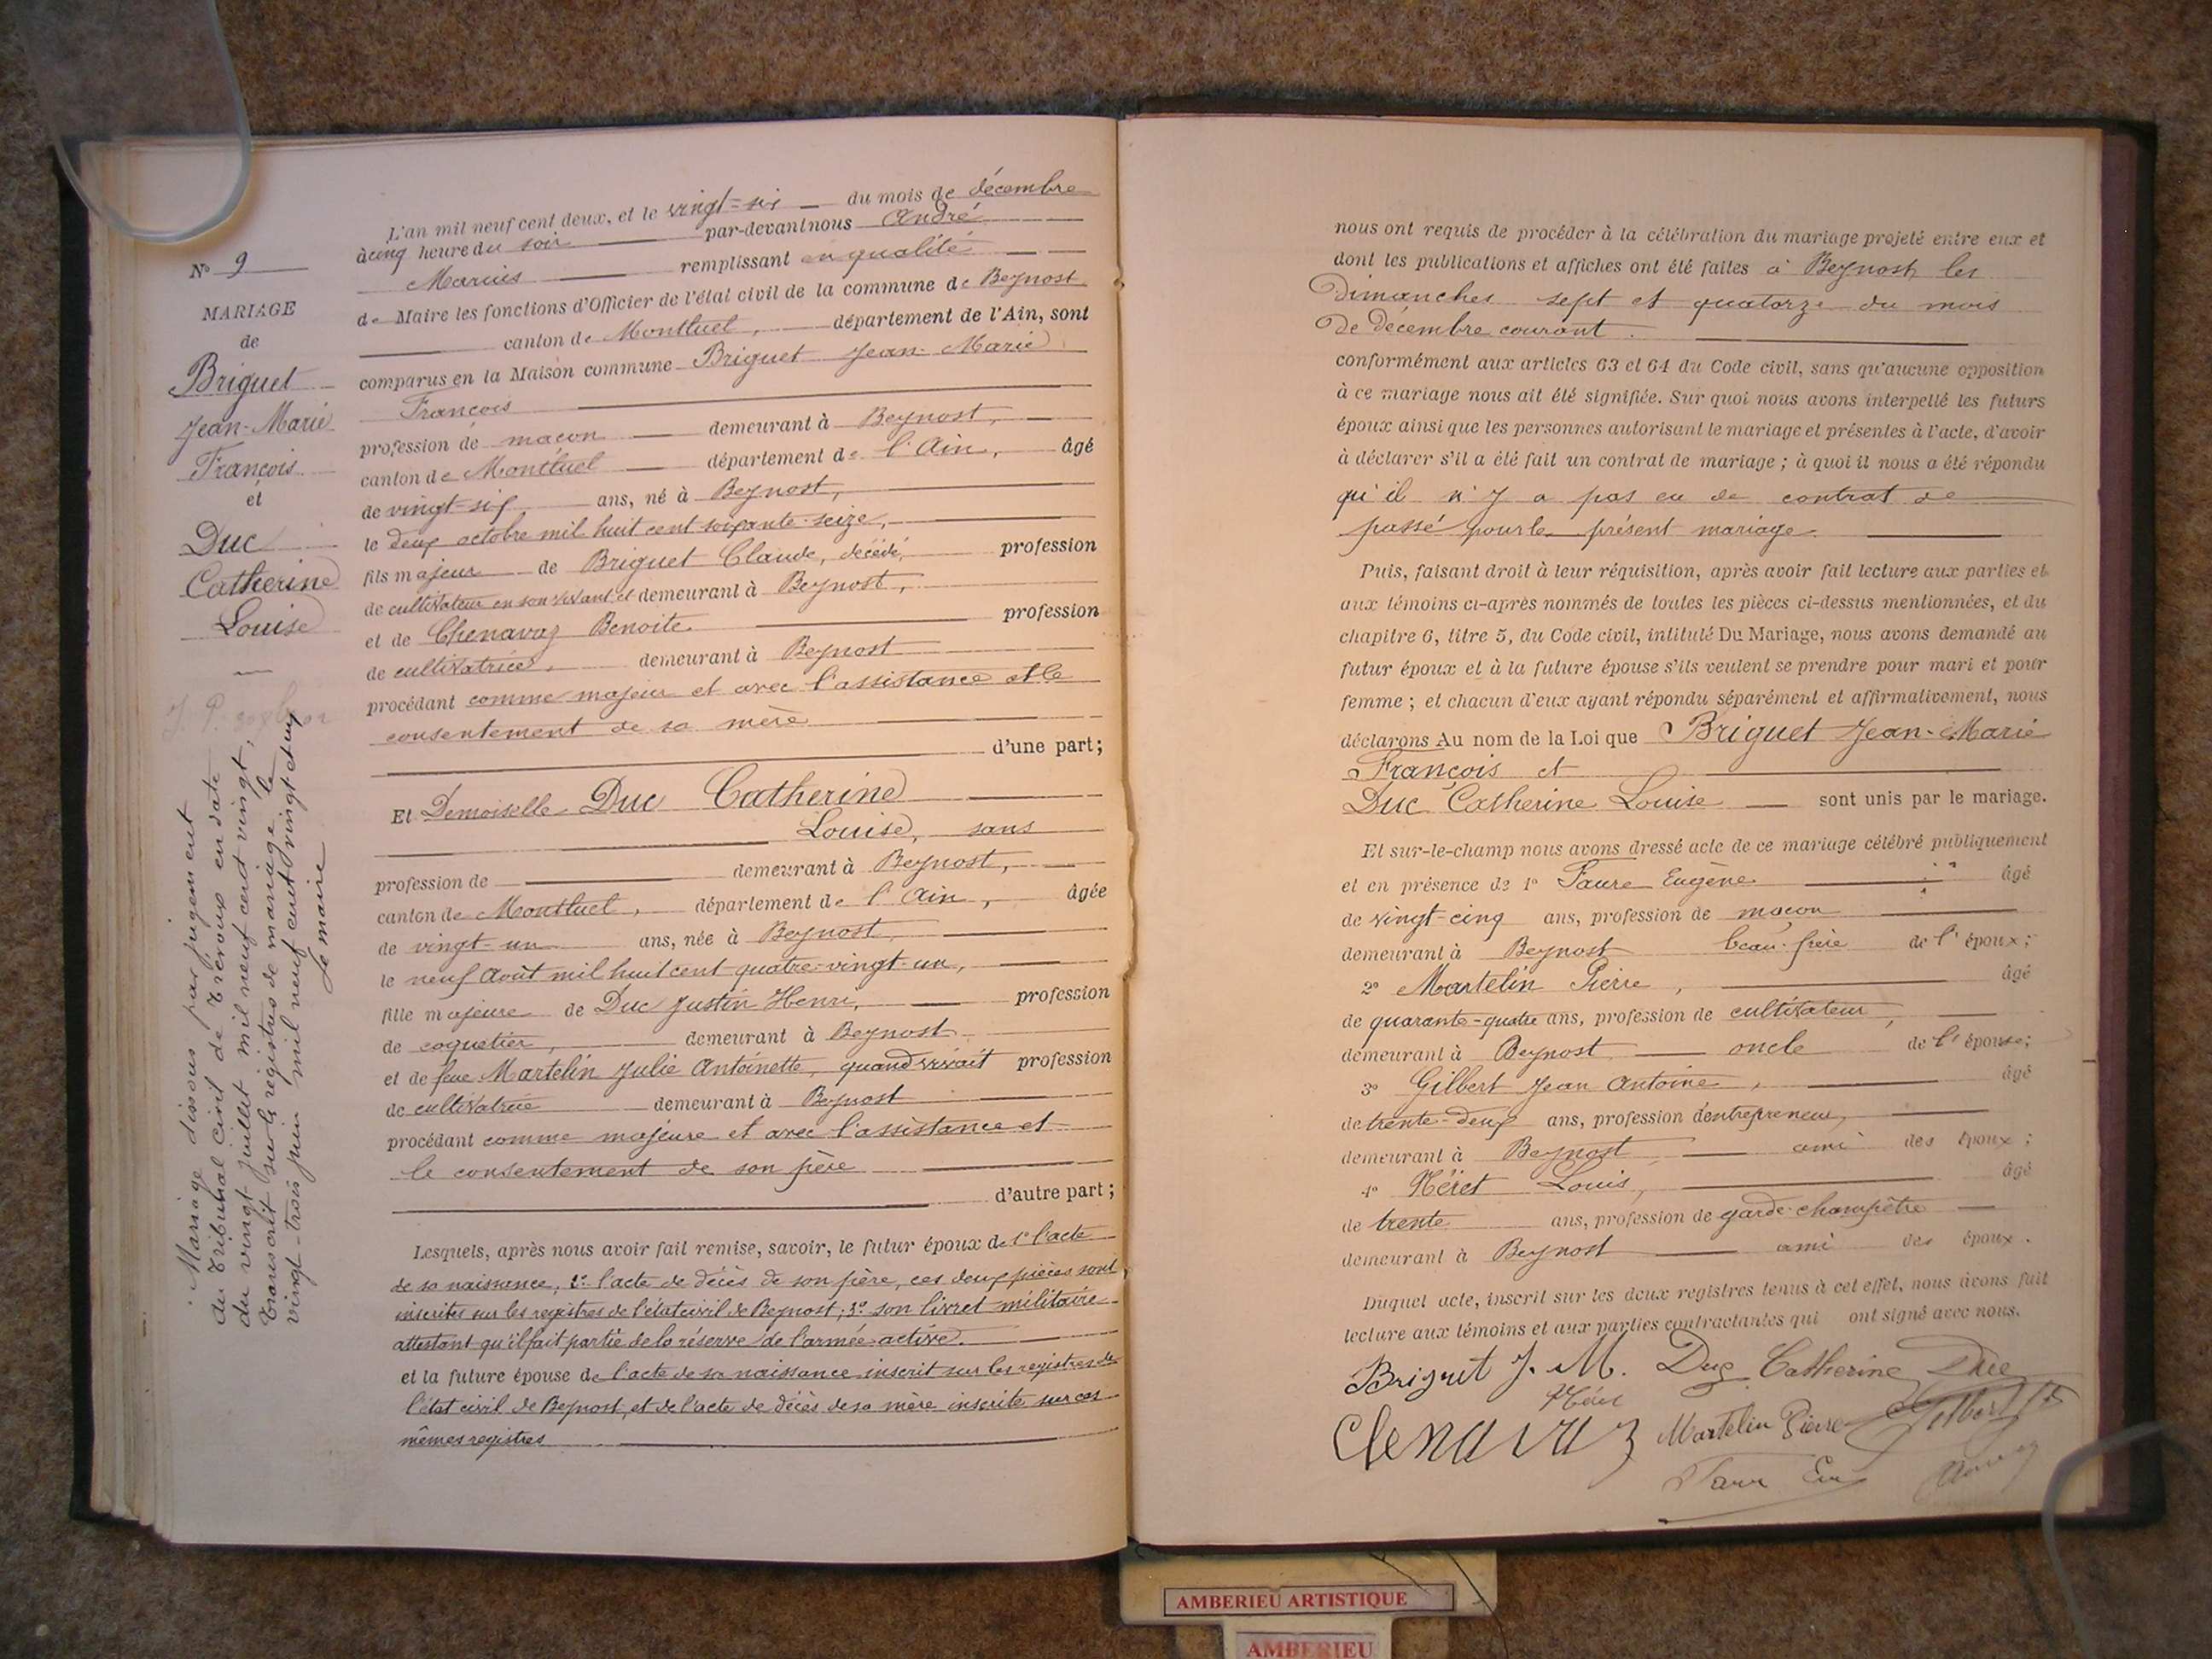 N° 9
MARIAGE
de
Briguet
Jean-Marie
François
et
Duc
Catherine
Louise
Mariage dissous par jugement
du Tribunal civil de Trévoux en date
du vingt juillet mil neuf cent vingt,
transcrit sur le registre de mariage le
vingt-trois juin mil neuf cent vingt et un
Le maire
L'an mil neuf cent deux, et le vingt-six du mois de décembre
à cinq heure du soir par-devant nous André
Marius remplissant en qualité
de Maire les fonctions d'Officier de l'état civil de la commune de Beynost
canton de Montluel, département de l'Ain, sont
comparus en la Maison commune Briguet Jean-Marie
François
profession de maçon demeurant à Beynost,
canton de Montluel département de l'Ain, âgé
de vingt-six ans, né à Beynost,
le deux octobre mil huit cent soixante-seize,
fils majeur de Briguet Claude, décédé, profession
de cultivateur en son vivant et demeurant à Beynost,
et de Chenavaz Benoite profession
de cultivatrice, demeurant à Beynost
procédant comme majeur et avec l'assistance et le
consentement de sa mère
d'une part;
Et Demoiselle Duc Catherine
Louise, sans
profession de demeurant à Beynost,
canton de Montluel, département de l'Ain, âgée
de vingt-un ans, née à Beynost,
le neuf Août mil huit cent quatre-vingt-un,
fille majeure de Duc Justin Henri, profession
de coquetier, demeurant à Beynost
et de feue Martelin Julie Antoinette, quand vivait profession
de cultivatrice demeurant à Beynost
procédant comme majeure et avec l'assistance et
le consentement de son père
d'autre part;
Lesquels, après nous avoir fait remise, savoir, le futur époux de 1° l'acte
de sa naissance, 2° l'acte de décès de son père, ces deux pièces sont
inscrites sur les registres de l'état civil de Beynost; 3° son livret militaire
attestant qu'il fait partie de la réserve de l'armée active.
et la future épouse de l'acte de sa naissance inscrit sur les registres de
l'état civil de Beynost, et de l'acte de décès de sa mère inscrite sur ces
mêmes registres
nous ont requis de procéder à la célébration du mariage projeté entre eux et
dont les publications et affiches ont été faites à Beynost, les
Dimanches sept et quatorze du mois
de décembre courant.
conformément aux articles 63 et 64 du Code civil, sans qu'aucune opposition
à ce mariage nous ait été signifiée. Sur quoi nous avons interpellé les futurs
époux ainsi que les personnes autorisant le mariage et présentes à l'acte, d'avoir
à déclarer s'il a été fait un contrat de mariage; à quoi il nous a été répondu
qu'il n'y a pas eu de contrat de
passé pour le présent mariage
Puis, faisant droit à leur réquisition, après avoir fait lecture aux parties et
aux témoins ci-après nommés de toutes les pièces ci-dessus mentionnées, et du
chapitre 6, titre 5, du Code civil, intitulé Du Mariage, nous avons demandé au
futur époux et à la future épouse s'ils veulent se prendre pour mari et pour
femme; et chacun d'eux ayant répondu séparément et affirmativement, nous
déclarons Au nom de la Loi que Briguet Jean-Marie
François et
Duc Catherine Louise sont unis par le mariage.
Et sur-le-champ nous avons dressé acte de ce mariage célébré publiquement
et en présence de 1° Faure Eugène âgé
de vingt-cinq ans, profession de maçon
demeurant à Beynost beau-frère de l'époux;
2° Martelin Pierre, âgé
de quarante-quatre ans, profession de cultivateur,
demeurant à Beynost oncle de l'épouse;
3° Gilbert Jean Antoine, âgé
de trente-deux ans, profession d'entrepreneur,
demeurant à Beynost, ami des époux;
4° Néret Louis, âgé
de trente ans, profession de garde-champêtre
demeurant à Beynost ami des époux.
Duquel acte, inscrit sur les deux registres tenus à cet effet, nous avons fait
lecture aux témoins et aux parties contractantes qui ont signé avec nous.
Briguet J. M. Duc Catherine Duc
Chenavaz Martelin Pierre Gilbert
Faure
AMBERIEU ARTISTIQUE
AMBERIEU